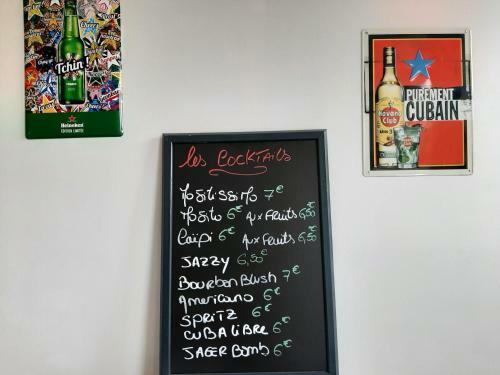 Tchin
Heineken
ÉDITION LIMITÉE
PUREMENT
CUBAIN
Havana
Club
les COCKTAils
Mojitissimo 7€
Mojito 6€ Aux Fruits 6,50€
Caïpi 6€ Aux Fruits 6,50€
JAZZY 6,50€
Bourbon Blush 7€
Americano 6€
SPRITZ 6€
CUBA LIBRE 6€
JAGER Bomb 6€